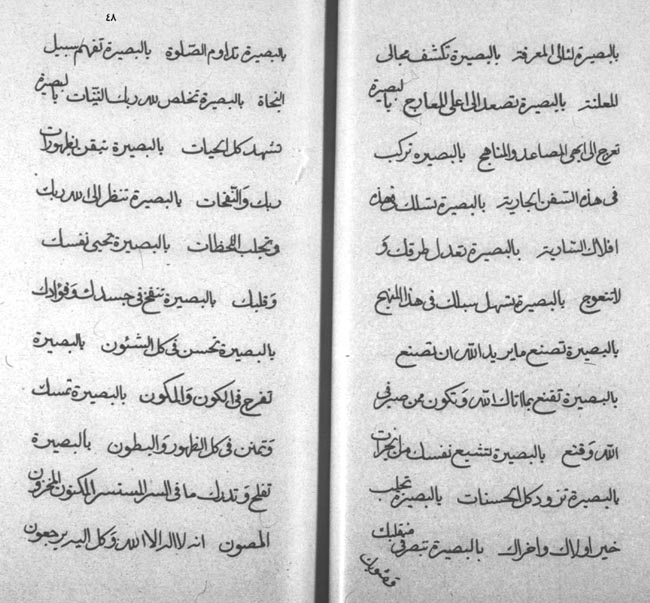 بالبصيرة لئالئ المعرفة بالبصيرة تكشف مجالى
للعلنة بالبصيرة تصعد الى اعلى المعارج بالبصيرة
تعرج الى ابهى المصاعد والمناهج بالبصيرة تركب
فى هذه السفن الجارية بالبصيرة تسلك فى هذه
افلاك السارية بالبصيرة تعدل طرقك و
لاتنعوج بالبصيرة يتسهل سبلك فى هذا المنهج
بالبصيرة تصنع ما يريد الله ان تصنع
بالبصيرة تقنع بما اتاك الله وتكون ممن صبر فى
الله وقنع بالبصيرة تشيع نفسك من
بالبصيرة تزود كل الحسنات بالبصيرة تجلب
خير اولاك واخراك بالبصيرة تتصرف فى منقلبك
٤٨
بالبصيرة تداوم الصلوة بالبصيرة تفهم سبيل
النجاة بالبصيرة تخلص لله ربك النيات بالبصيرة
تشهد كل الحيات بالبصيرة تيقن بظهورات
ربك والنفحات بالبصيرة تنظر الى الله ربك
وتجلب اللحظات بالبصيرة تحيى نفسك
وقلبك بالبصيرة تنفخ فى جسدك وفؤادك
بالبصيرة تحسن فى كل الشئون بالبصيرة
تفرح فى الكون والمكون بالبصيرة تمسك
وتمنن فى كل الظهور والبطون بالبصيرة
تفلح وتدرك ما فى السر المستسر المكنون المخزون
المصون انه لا اله الا الله وكل اليه يرجعون